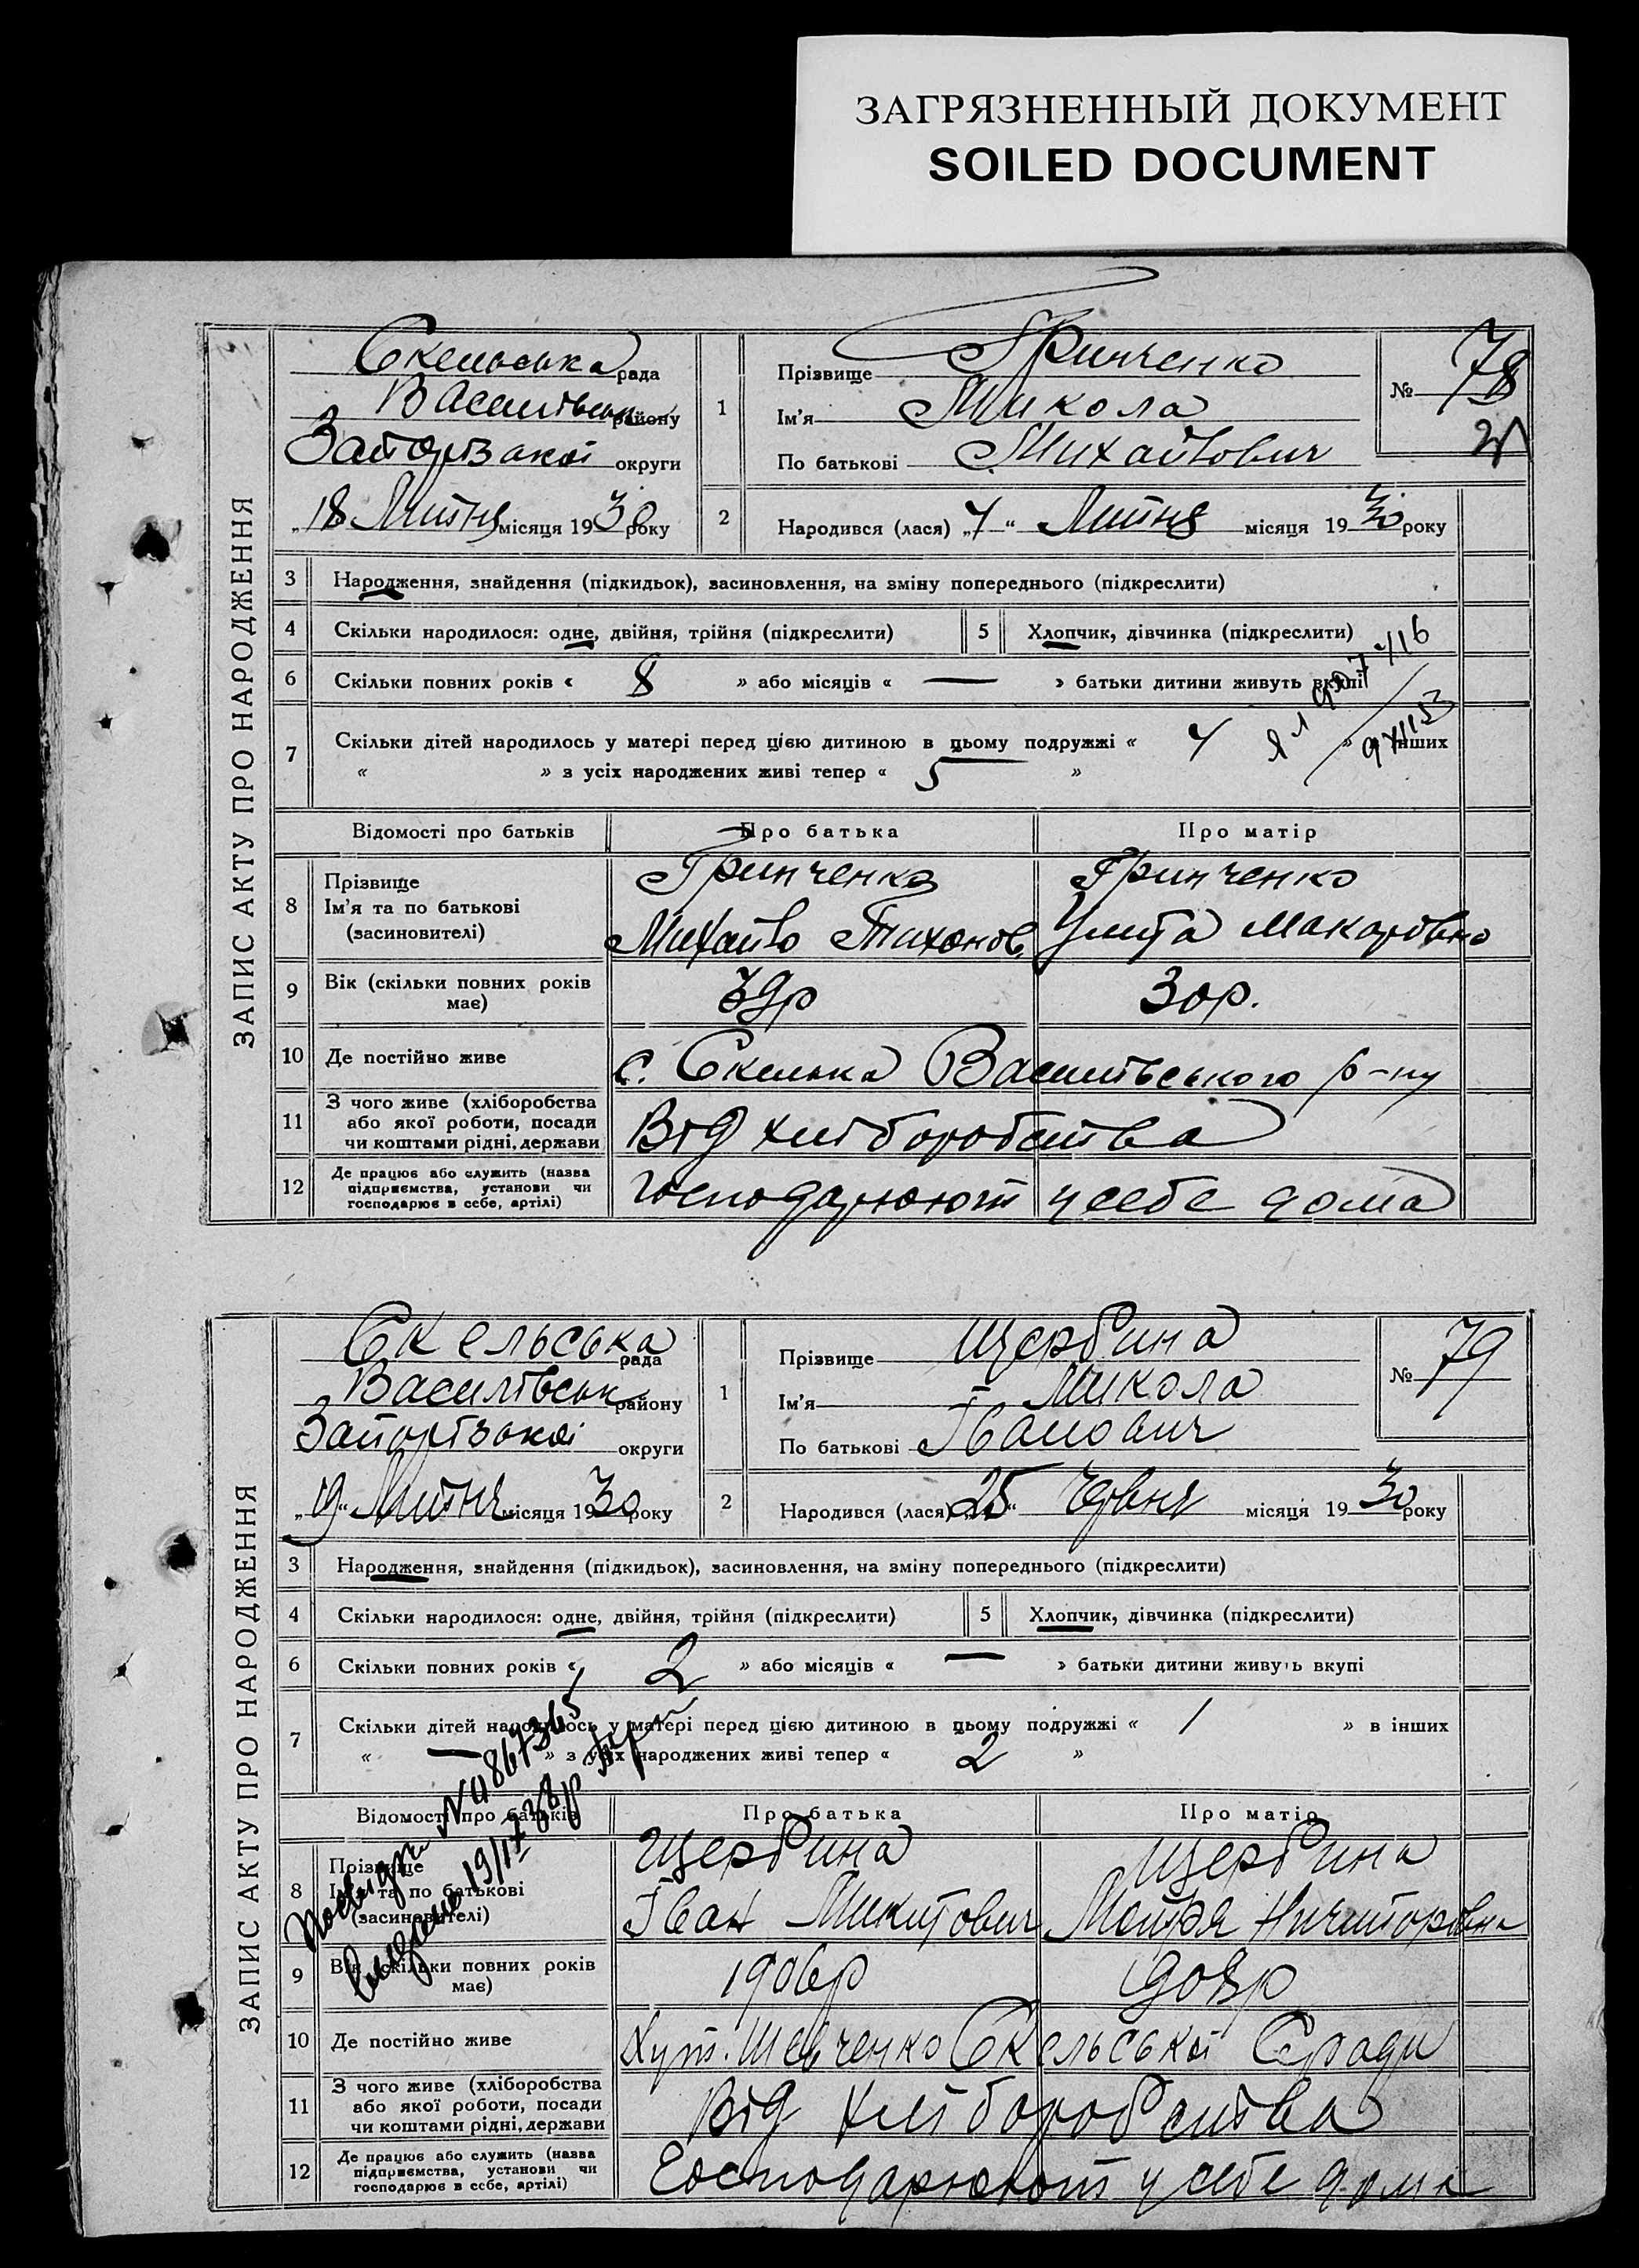 ЗАГРЯЗНЕННЫЙ ДОКУМЕНТ
SOILED DOCUMENT
ЗАПИС АКТУ ПРО НАРОДЖЕННЯ
Скельська рада
Василівськ району
Запорізької округи
„18 Липня місяця 1930 року
1
Прізвище Грінченко
Ім'я Микола
По батькові Михайлович
№ 78
2
Народився (лася) „7“ Липня місяця 1930 року
3 Народження, знайдення (підкидьок), засиновлення, на зміну попереднього (підкреслити)
4 Скільки народилося: одне, двійня, трійня (підкреслити) 5 Хлопчик, дівчинка (підкреслити)
6 Скільки повних років « 8 » або місяців « — » батьки дитини живуть вкупі
7 Скільки дітей народилось у матері перед цією дитиною в цьому подружжі « » в інших
« » з усіх народжених живі тепер « 5 »
Відомості про батьків Про батька Про матір
8 Прізвище Грінченко Грінченко
Ім'я та по батькові
(засиновителі) Михайло Тихонов. Улита Макарівна
9 Вік (скільки повних років має) 39р 30р.
10 Де постійно живе с. Скелька Василівського р-ну
11 З чого живе (хліборобства
або якої роботи, посади
чи коштами рідні, держави Від хліборобства
12 Де працює або служить (назва
підприємства, установи чи
господарює в себе, артілі) господарюют у себе дома
ЗАПИС АКТУ ПРО НАРОДЖЕННЯ
Скельська рада
Василівськ району
Запорізької округи
„19“ Липня місяця 1930 року
1
Прізвище Щербина
Ім'я Микола
По батькові Іванович
№ 79
2
Народився (лася) „25“ Червня місяця 1930 року
3 Народження, знайдення (підкидьок), засиновлення, на зміну попереднього (підкреслити)
4 Скільки народилося: одне, двійня, трійня (підкреслити) 5 Хлопчик, дівчинка (підкреслити)
6 Скільки повних років « 2 » або місяців « — » батьки дитини живуть вкупі
7 Скільки дітей народилось у матері перед цією дитиною в цьому подружжі « 1 » в інших
« — » з усіх народжених живі тепер « 2 »
Відомості про батьків Про батька Про матір
8 Прізвище Щербина Щербина
Ім'я та по батькові
(засиновителі) Іван Микитович Мотря Ничипорівна
9 Вік (скільки повних років має) 1906р 908р
10 Де постійно живе Хут. Шевченко Скельської С ради
11 З чого живе (хліборобства
або якої роботи, посади
чи коштами рідні, держави Від хліборобства
12 Де працює або служить (назва
підприємства, установи чи
господарює в себе, артілі) Господарюют у себе дома